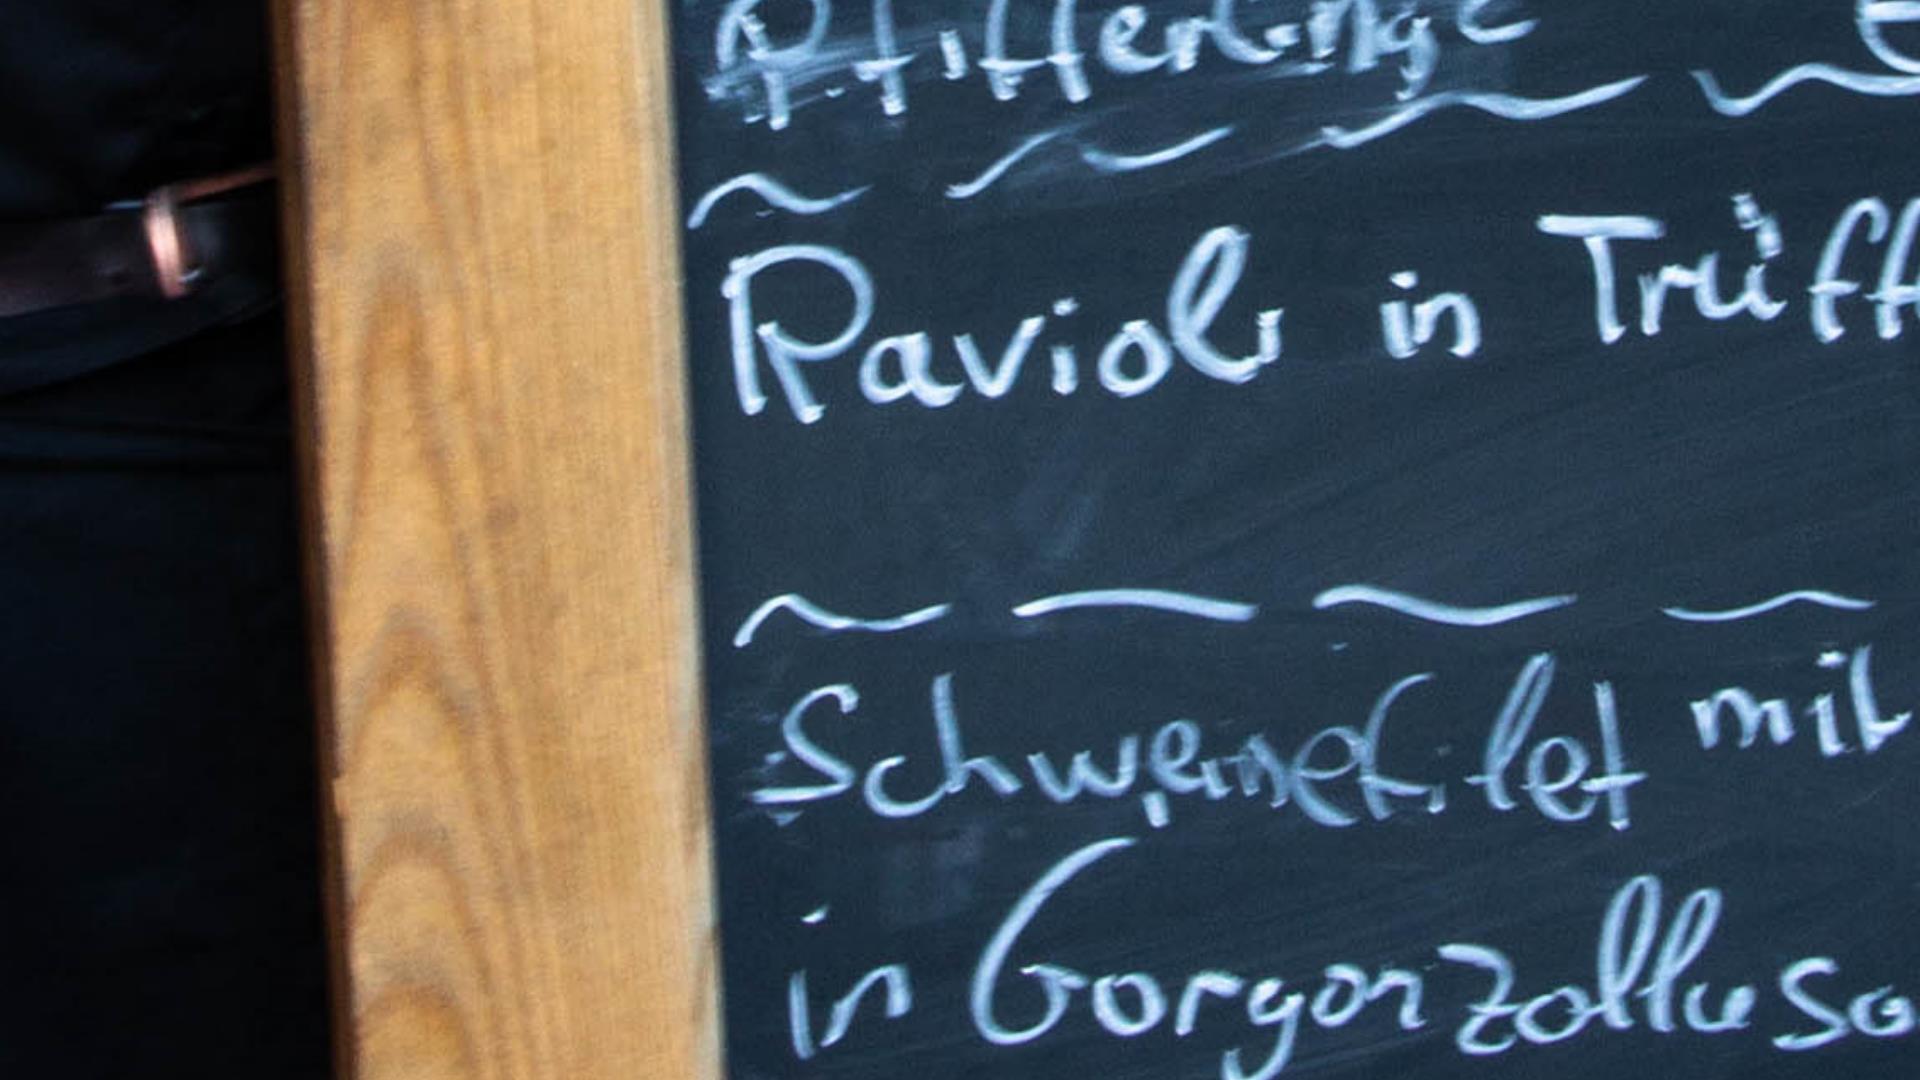 Pfifferlinge €
Ravioli in Trüff
Schweinefilet mit
in Gorgonzollaso